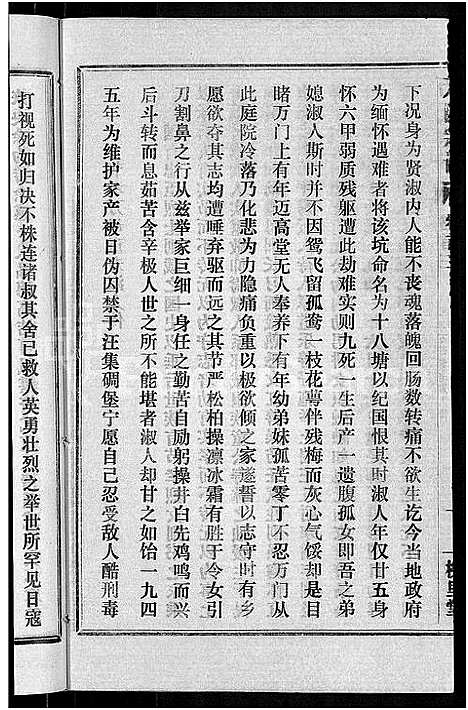 下况身为贤淑内人能不丧魂落魄回肠数转痛不欲生讫今当地政府
为缅怀遇难者将该坑命名为十八塘以纪国恨其时淑人年仅廿五身
怀六甲弱质残躯遭此劫难实则九死一生后产一遗腹孤女即吾之弟
媳淑人斯时并不因鸳飞留孤鸯一枝花萼伴残梅而灰心气馁却是目
睹万门上有年迈高堂无人奉养下有年幼弟妹孤苦零丁不忍万门从
此庭院冷落乃化悲为力隐痛负重以极欲倾之家遂誓以志守时有乡
愿欲夺其志均遭唾弃驱而远之其节严松柏操凛冰霜有胜于令女引
刀割鼻之行从兹举家巨细一身任之勤苦自励躬操井臼先鸡鸣而兴
后斗转而息茹苦含辛极人世之所不能堪者淑人却甘之如饴一九四
五年为维护家产被日伪囚禁于汪集碉堡宁愿自己忍受敌人酷刑毒
打视死如归决不株连诸叔其舍已救人英勇壮烈之举世所罕见日寇